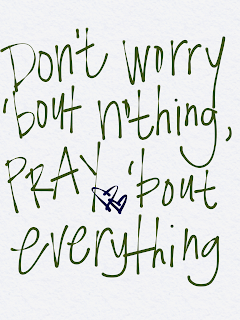 Don't worry
'bout n'thing,
PRAY 'bout
everything